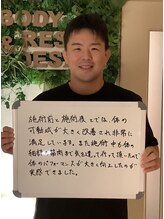 BODY
& RES
施術前と施術後としては、体の
可動域が大きく改善され非常に
満足しています。また施術中も体の
細部、筋肉まで気を遣って行って頂いたので
体のパフォーマンスが大きく向上したのが
実感できました。